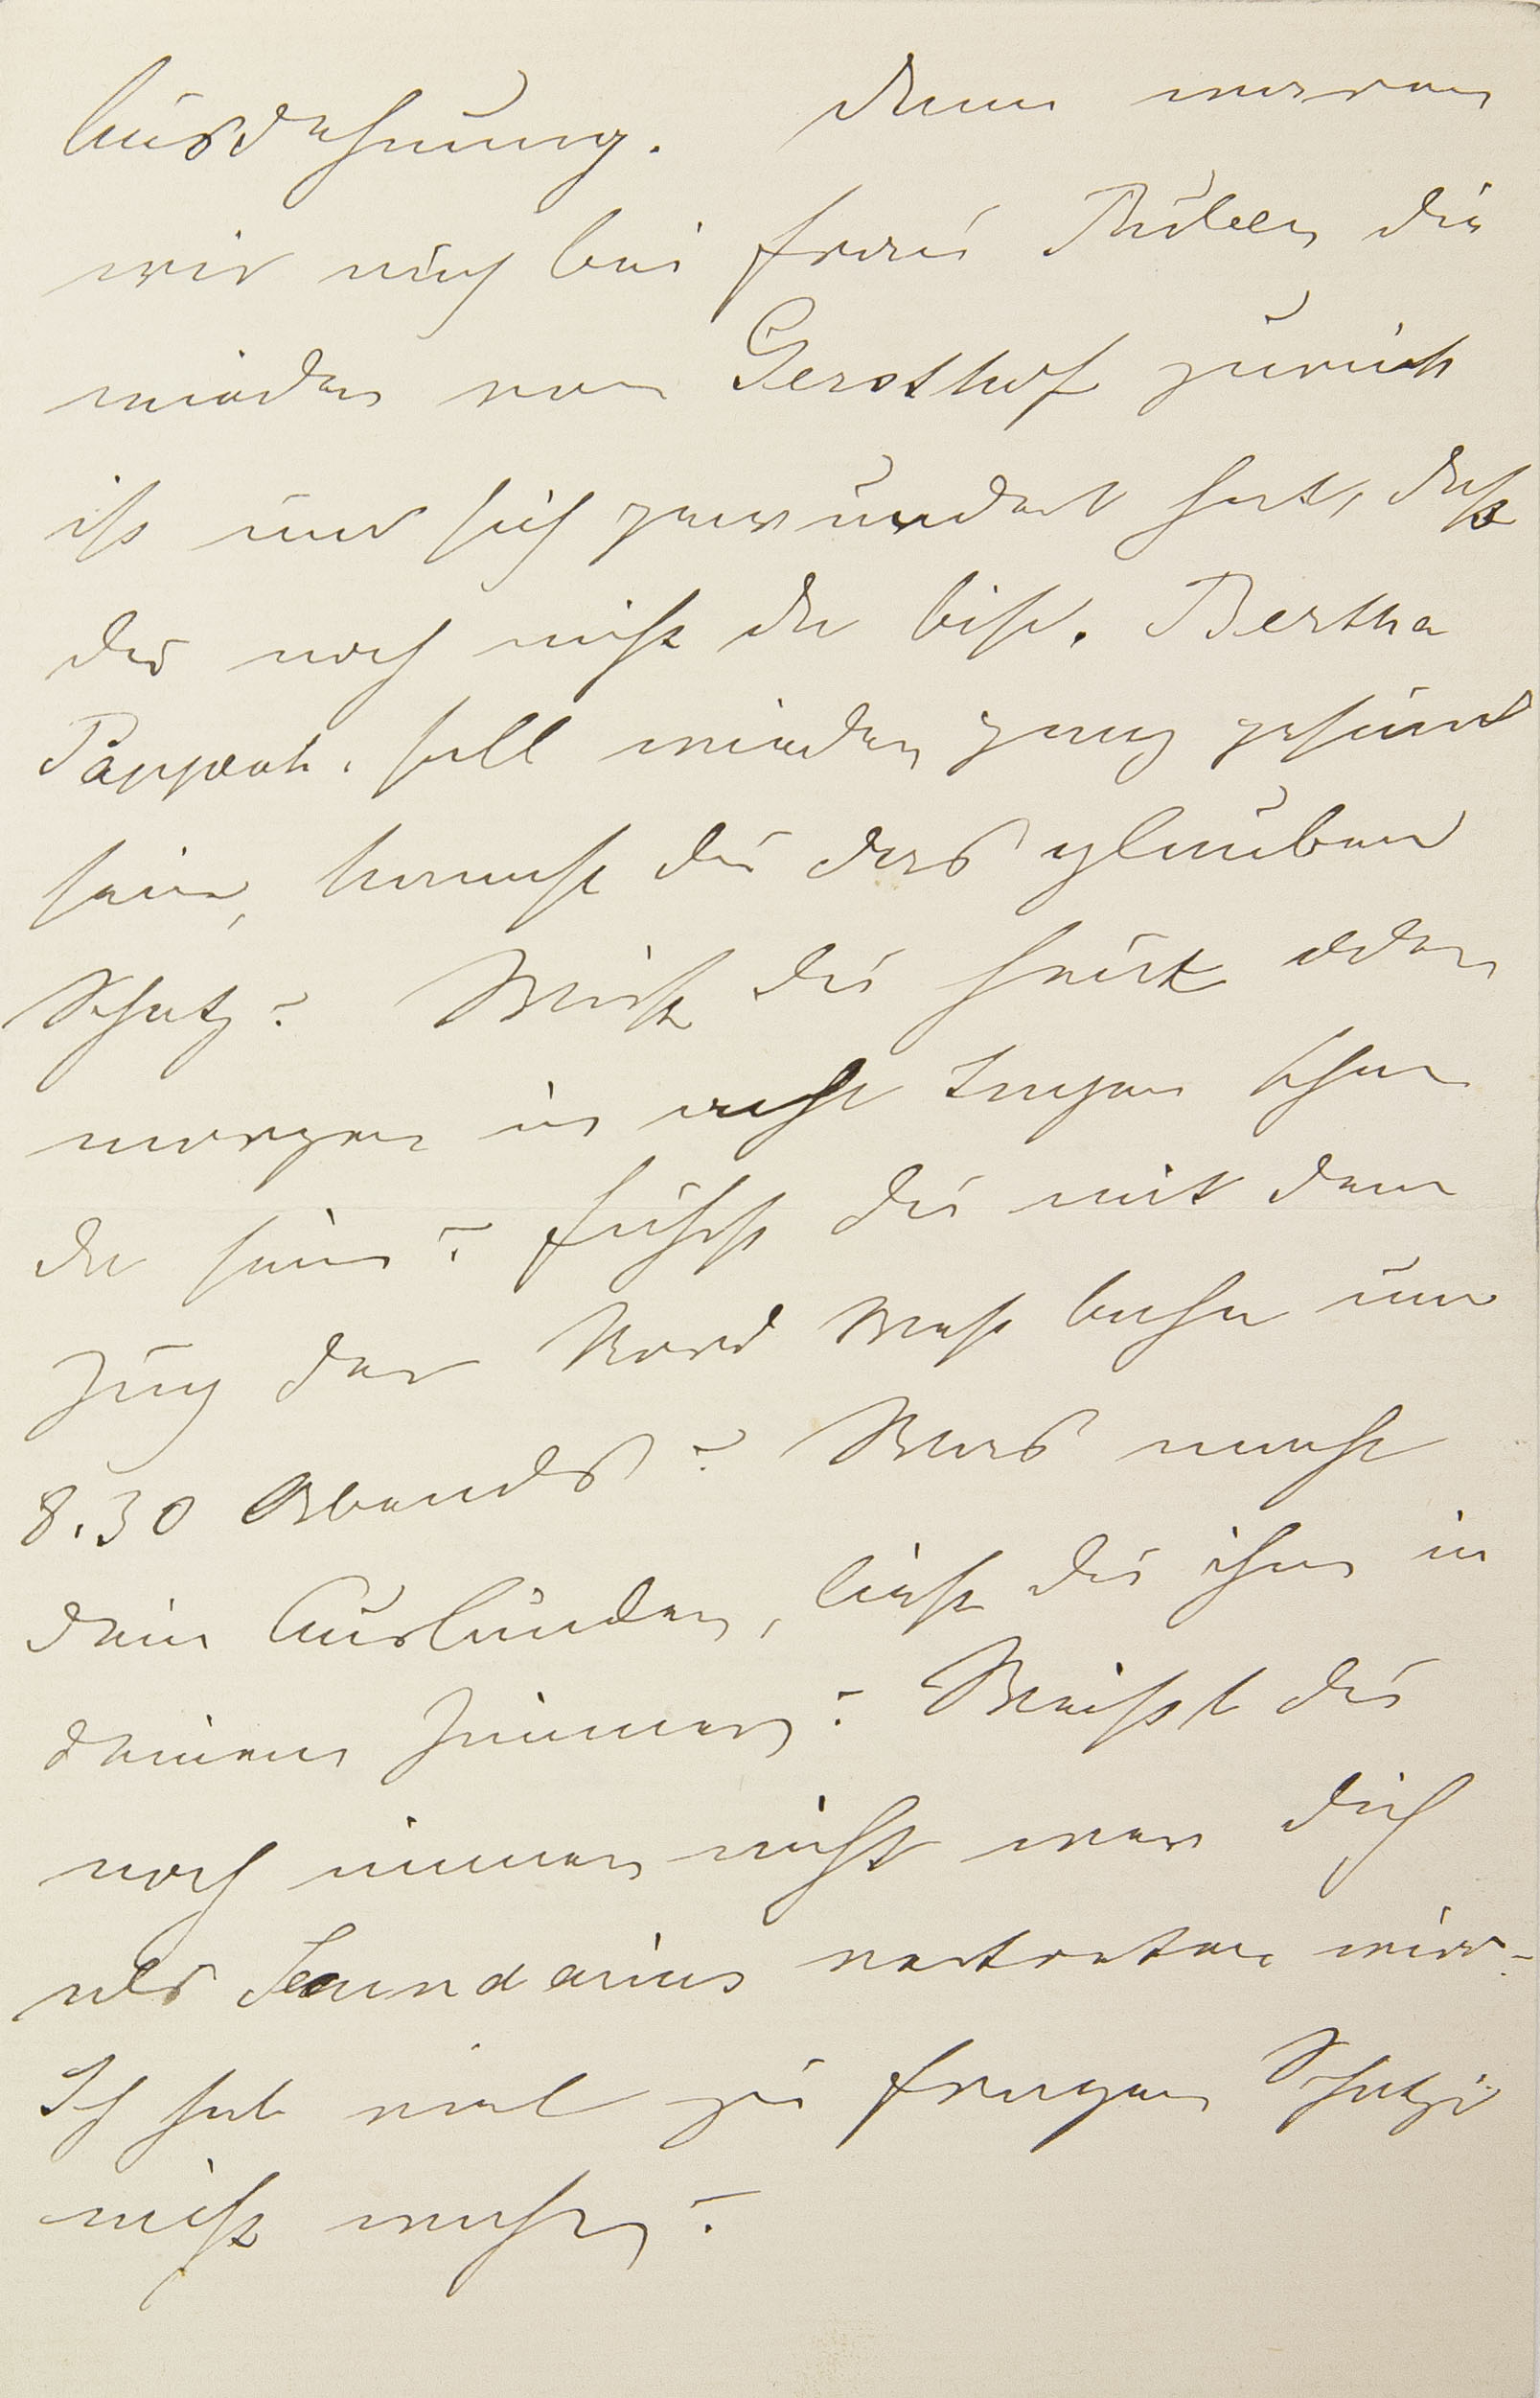 Ausdehnung. Dann waren
wir auch bei Frau Rubin die
wieder von Gersthof zurück
ist und sich gewundert hat, daß
du noch nicht da bist. Bertha
Pappenh. soll wieder ganz gesund
sein, kannst du das glauben
Schatz? Wirst du heut oder
morgen in acht Tagen schon
da sein? Fährst du mit dem
Zug der Nord West bahn um
8.30 Abends? Was macht
dein Ausländer, läßt du ihn in
deinem Zimmer? Weißt du
noch immer nicht wer dich
als Secundarius vertreten wird.
Ich hab viel zu fragen Schatzi
nicht wahr?